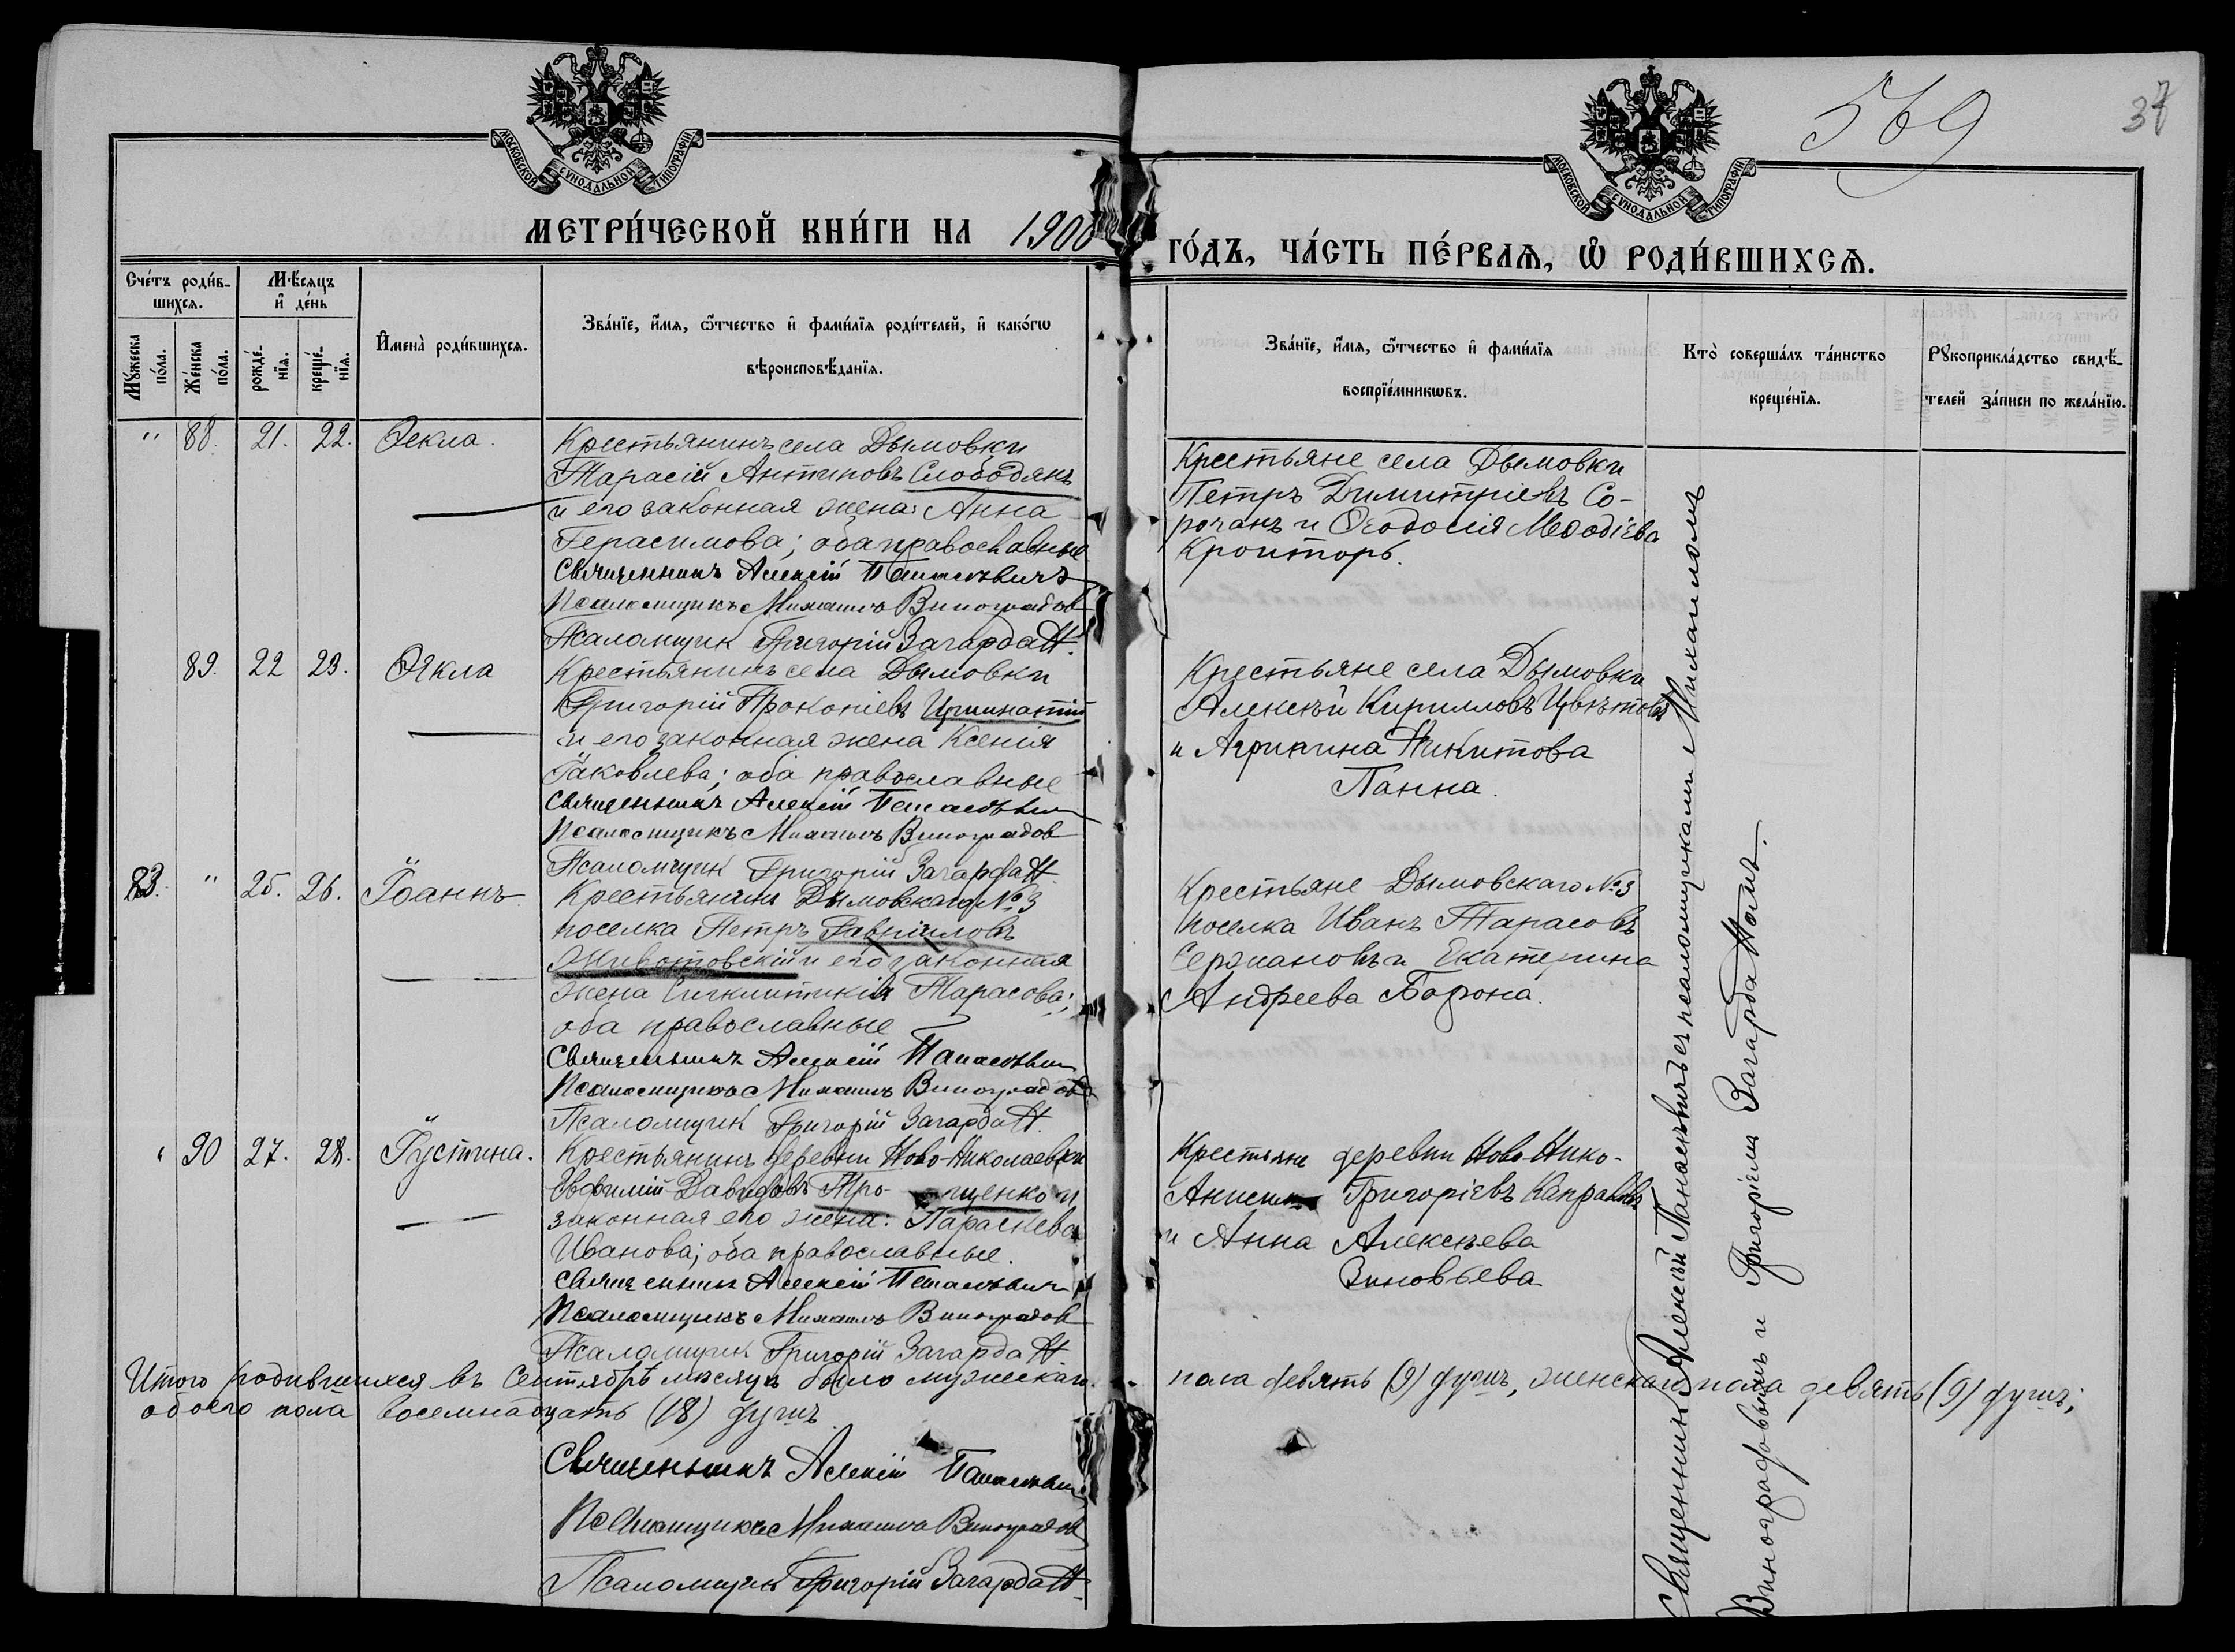 569
37
МОСКОВСКОЙ СѴНОДАЛЬНОЙ ТИПОГРАФІИ
МОСКОВСКОЙ СѴНОДАЛЬНОЙ ТИПОГРАФІИ
МЕТРИ́ЧЕСКОЙ КНИ́ГИ НА 1900 ГО́ДЪ, ЧА́СТЬ ПЕ́РВАѦ, Ѡ РОДИ́ВШИХСѦ.
Сче́тъ роди́в-
шихсѧ.
Мꙋ́жеска по́ла.
Же́нска по́ла.
Мѣ́сѧцъ
и҆ де́нь
рожде́-
нїѧ.
креще́-
нїѧ.
И҆мена̀ роди́вшихсѧ.
Зва́нїе, и҆́мѧ, ѻ҆́тчество и҆ фами́лїѧ роди́телей, и҆ како́гѡ
вѣроисповѣ́данїѧ.
Зва́нїе, и҆́мѧ, ѻ҆́тчество и҆ фами́лїѧ
воспрїе́мникѡвъ.
Кто̀ соверша́лъ та́инство
креще́нїѧ.
Рꙋкоприкла́дство свидѣ́-
телей за́писи по жела́нїю.
" 88. 21. 22. Ѳекла.
Крестьянинъ села Дымовки
Тарасій Антиповъ Слободянъ
и его законная жена: Анна
Герасимова; оба православные
Священникъ Алексій Панасевичъ
Псаломщикъ Михаилъ Виноградов
Псаломщик Григорій Загарда Н.
Крестьяне села Дымовки
Петръ Димитріевъ Со-
рочанъ и Ѳеодосія Меѳодіева
Кроиторъ.
89. 22 23. Ѳекла
Крестьянинъ села Дымовки
Григорій Прокопіевъ
и его законная жена Ксенія
Іаковлева; оба православные
Священникъ Алексій Панасевич
Псаломщикъ Михаилъ Виноградов
Псаломщик Григорій Загарда Н.
Крестьяне села Дымовки
Алексѣй Кирилловъ Цвѣтовъ
и Агрипина Никитова
Панна.
83. " 25. 26. Іоаннъ
Крестьянинъ Дымовскаго № 3
поселка Петръ Гавріиловъ
Животовскій и его законная
жена Сигклитикія Тарасова;
оба православные
Священникъ Алексій Панасевич
Псаломщикъ Михаилъ Виноградов
Псаломщик Григорій Загарда Н.
Крестьяне Дымовскаго № 3
поселка Иванъ Тарасовъ
Сержановъ и Екатерина
Андреева Борона.
" 90 27. 28. Іустина.
Крестьянинъ деревни Ново-Николаевки
Евфимій Давидовъ Про- щенко и
законная его жена: Параскева
Иванова; оба православные.
Священникъ Алексій Панасевич
Псаломщикъ Михаилъ Виноградов
Псаломщик Григорій Загарда Н
Крестьяне деревни Ново-Нико-
Анисим Григоріевъ
и Анна Алексѣева
Зиновьева
Священникъ Алексѣй Панасевичъ съ псаломщиками Михаиломъ
Виноградовымъ и Григоріемъ Загарда
Итого родившихся въ Сентябрѣ мѣсяцѣ было мужескаго пола девять (9) душъ, женскаго пола девять (9) душъ;
обоего пола восемнадцать (18) душъ
Священникъ Алексій Панасевич
Псаломщикъ Михаилъ Виноградов
Псаломщик Григорій Загарда Н.